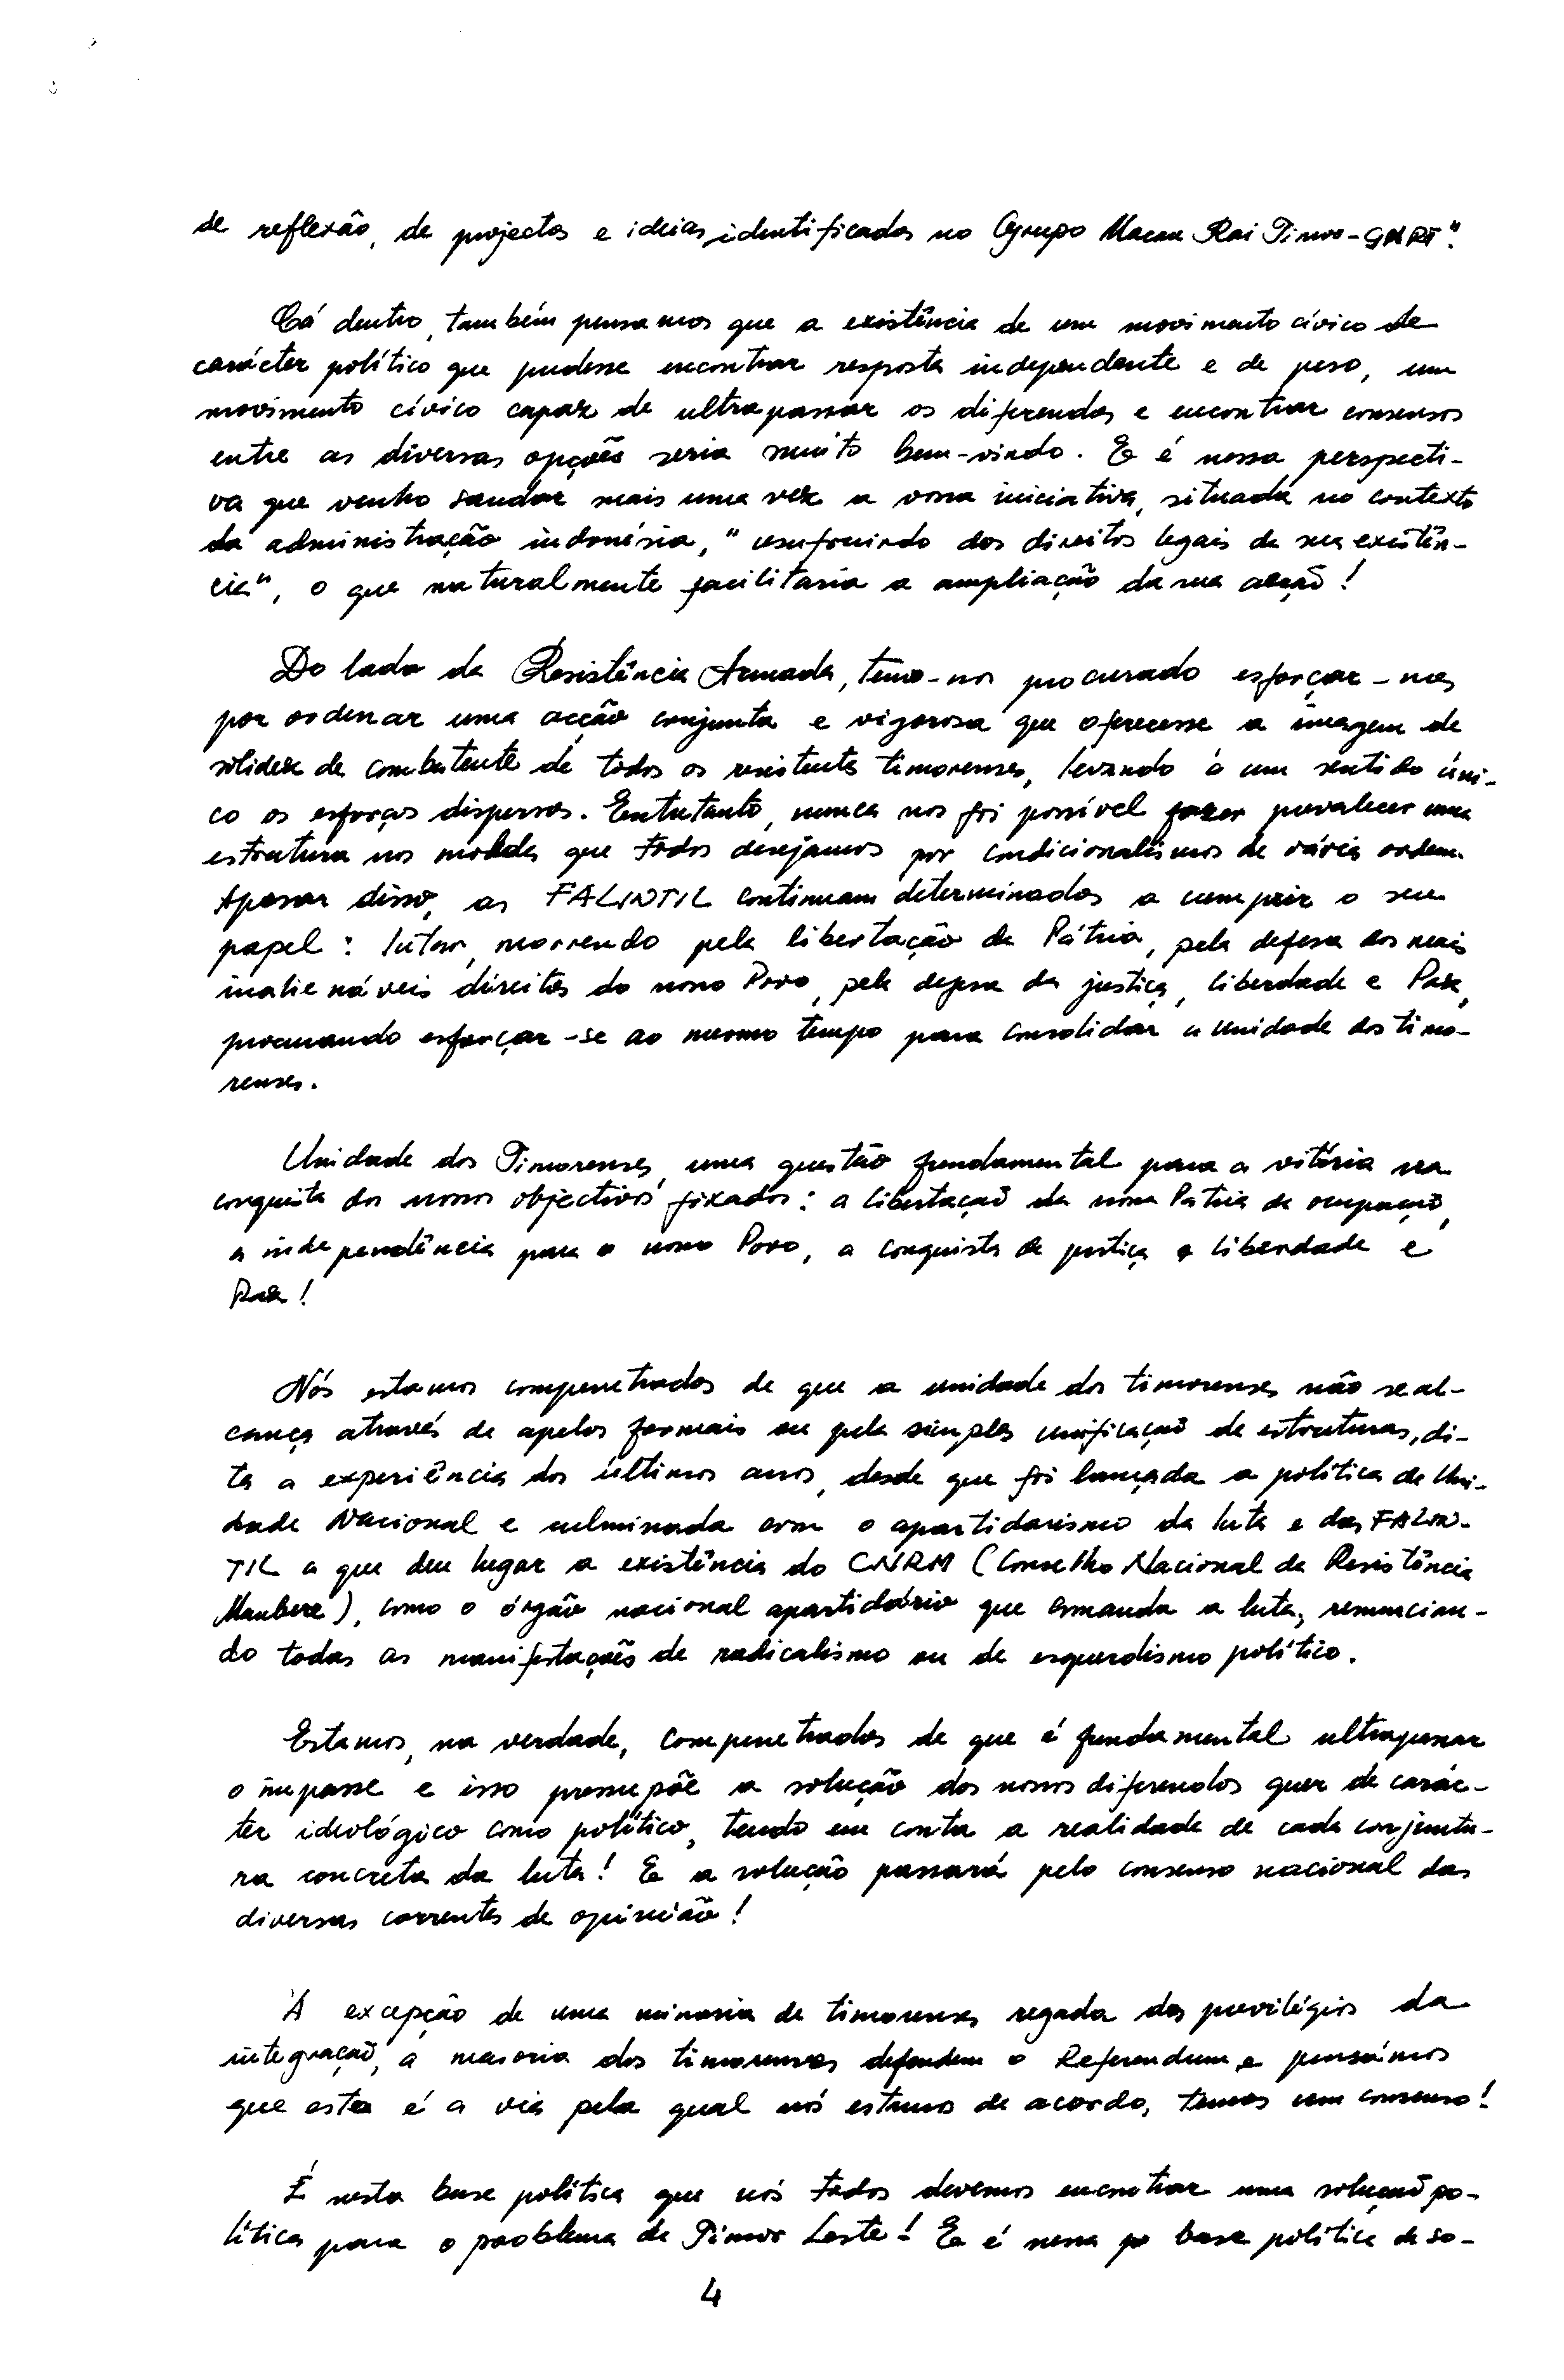 de reflexão, de projectos e ideias identificados no Grupo Macau Rai Timor-GMRT".
Cá dentro, também pensamos que a existência de um movimento cívico de
carácter político que pudesse encontrar resposta independente e de peso, um
movimento cívico capaz de ultrapassar os diferendos e encontrar consensos
entre as diversas opções seria muito bem-vindo. E é nessa perspecti-
va que venho saudar mais uma vez a vossa iniciativa, situada no contexto
da administração indonésia, "usufruindo dos direitos legais da sua existên-
cia", o que naturalmente facilitaria a ampliação da sua acção!
Do lado da Resistência Armada, temo-nos procurado esforçar-nos
por ordenar uma acção conjunta e vigorosa que oferecesse a imagem de
solidez de combatente de todos os resistentes timorenses, levando a um sentido úni-
co os esforços dispersos. Entretanto, nunca nos foi possível fazer prevalecer uma
estrutura nos moldes que todos desejamos por condicionalismos de vária ordem.
Apesar disso, as FALINTIL continuam determinados a cumprir o seu
papel: lutar, morrendo pela libertação da Pátria, pela defesa dos mais
inalienáveis direitos do nosso Povo, pela defesa da justiça, liberdade e Paz,
procurando esforçar-se ao mesmo tempo para consolidar a unidade dos timo-
renses.
Unidade dos Timorenses, uma questão fundamental para a vitória na
conquista dos nossos objectivos fixados: a libertação da nossa Pátria da ocupação,
a independência para o nosso Povo, a conquista da justiça e liberdade e
Paz!
Nós estamos compenetrados de que a unidade dos timorenses não se al-
cança através de apelos formais ou pela simples unificação de estruturas, di-
ta a experiência dos últimos anos, desde que foi lançada a política de Uni-
dade Nacional e culminada com o apartidarismo da luta e das FALIN-
TIL a que deu lugar a existência do CNRM (Conselho Nacional da Resistência
Maubere), como o órgão nacional apartidário que comanda a luta, renuncian-
do todas as manifestações de radicalismo ou de esquerdismo político.
Estamos, na verdade, compenetrados de que é fundamental ultrapassar
o impasse e isso pressupõe a solução dos nossos diferendos quer de carác-
ter ideológico como político, tendo em conta a realidade de cada conjuntu-
ra concreta da luta! E a solução passará pelo consenso nacional das
diversas correntes de opinião!
À excepção de uma minoria de timorenses regada dos previlégios da
integração, a maioria dos timorenses defendem o Referendum e pensámos
que esta é a via pela qual nós estamos de acordo, temos um consenso!
É nesta base política que nós todos devemos encontrar uma solução po-
lítica para o problema de Timor Leste! E é nessa base política de so-
4